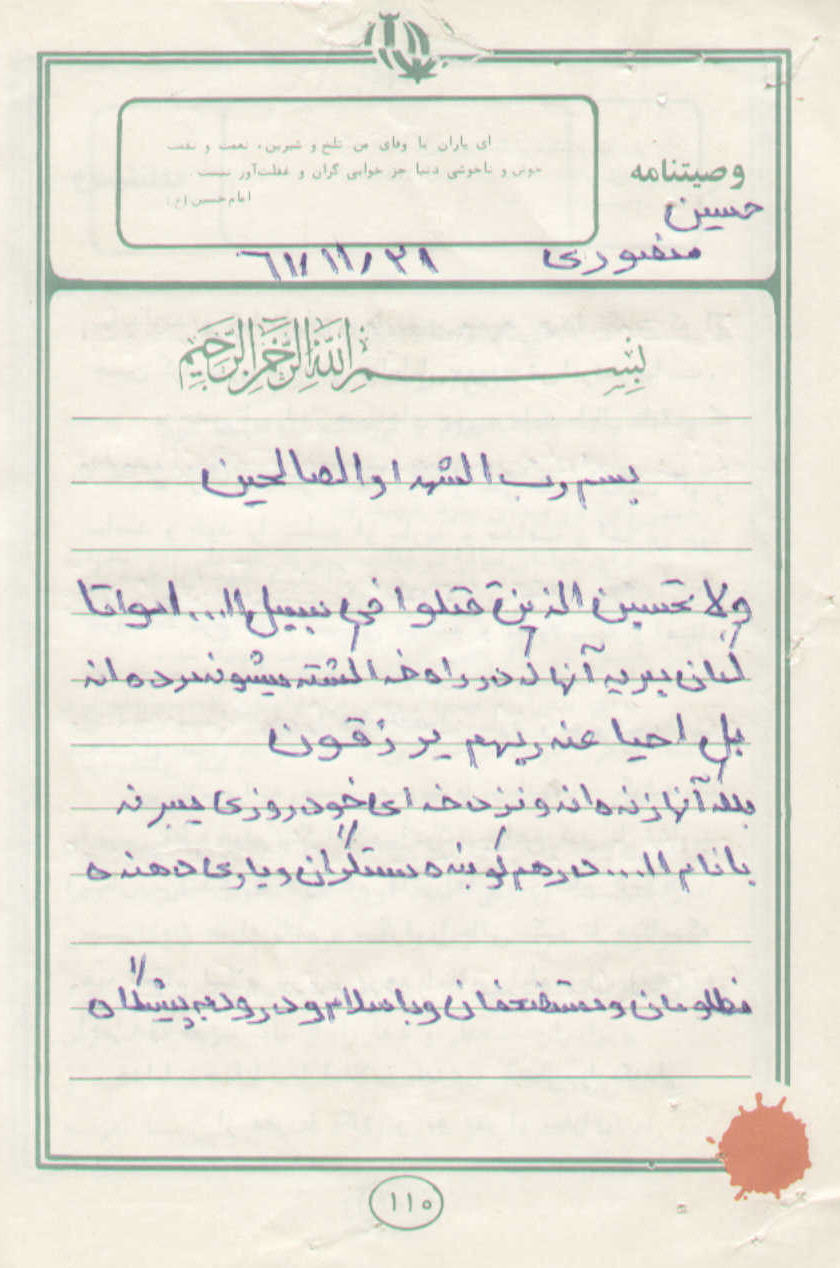 ای یاران با وفای من تلخ و شیرین، نعمت و نقمت
خوشی و ناخوشی دنیا جز خوابی گران و غفلت‌آور نیست
امام حسین (ع)
وصیتنامه
حسین
منصوری ۶۱/۱۱/۲۸
بسم الله الرحمن الرحیم
بسم رب الشهدا و الصالحین
ولا تحسبن الذین قتلوا فی سبیل ال... امواتا
گمان مبرید آنها که در راه خدا کشته میشوند مرده اند
بل احیا عند ربهم یرزقون
بلکه آنها زنده اند و نزد خدای خود روزی میبرند
با نام ال... درهم کوبنده ستمگران و یاری دهنده
مظلومان و مستضعفان و با سلام و درود به پیشگاه
۱۱۰